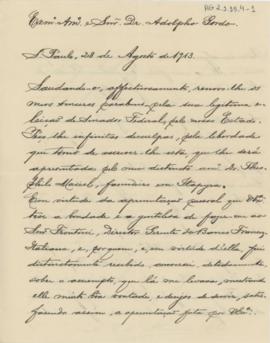 AG 2.3.35.4-1
Exmo. Amo. e Snr. Dr. Adolpho Gordo.
S. Paulo, 28 de Agosto de 1913.
Saudando-o, affectuosamente, renovo-lhe os
meus sinceros parabens, pela sua legitima e-
leição de Senador Federal, pelo nosso Estado.
Peço-lhe infinitas desculpas, pela liberdade
que tomo de escrever-lhe esta que lhe será
apresentada pelo meu distincto amo. Dr. Theo-
philo Maciel, fazendeiro em Itapyra.
Em virtude da apresentação pessoal que
teve a bondade e a gentileza de fazer-me ao
Snr. Frontini, Director Gerente do Banco Francez
Italiano, e, porquem, e, em virtude d'ella, fui
distinctamente recebido, conversei, detalhadamente
sobre o assumpto, que lá me levou, mostrando
elle muita boa vontade, e desejos de servir, satis-
fazendo assim, a apresentação feita por